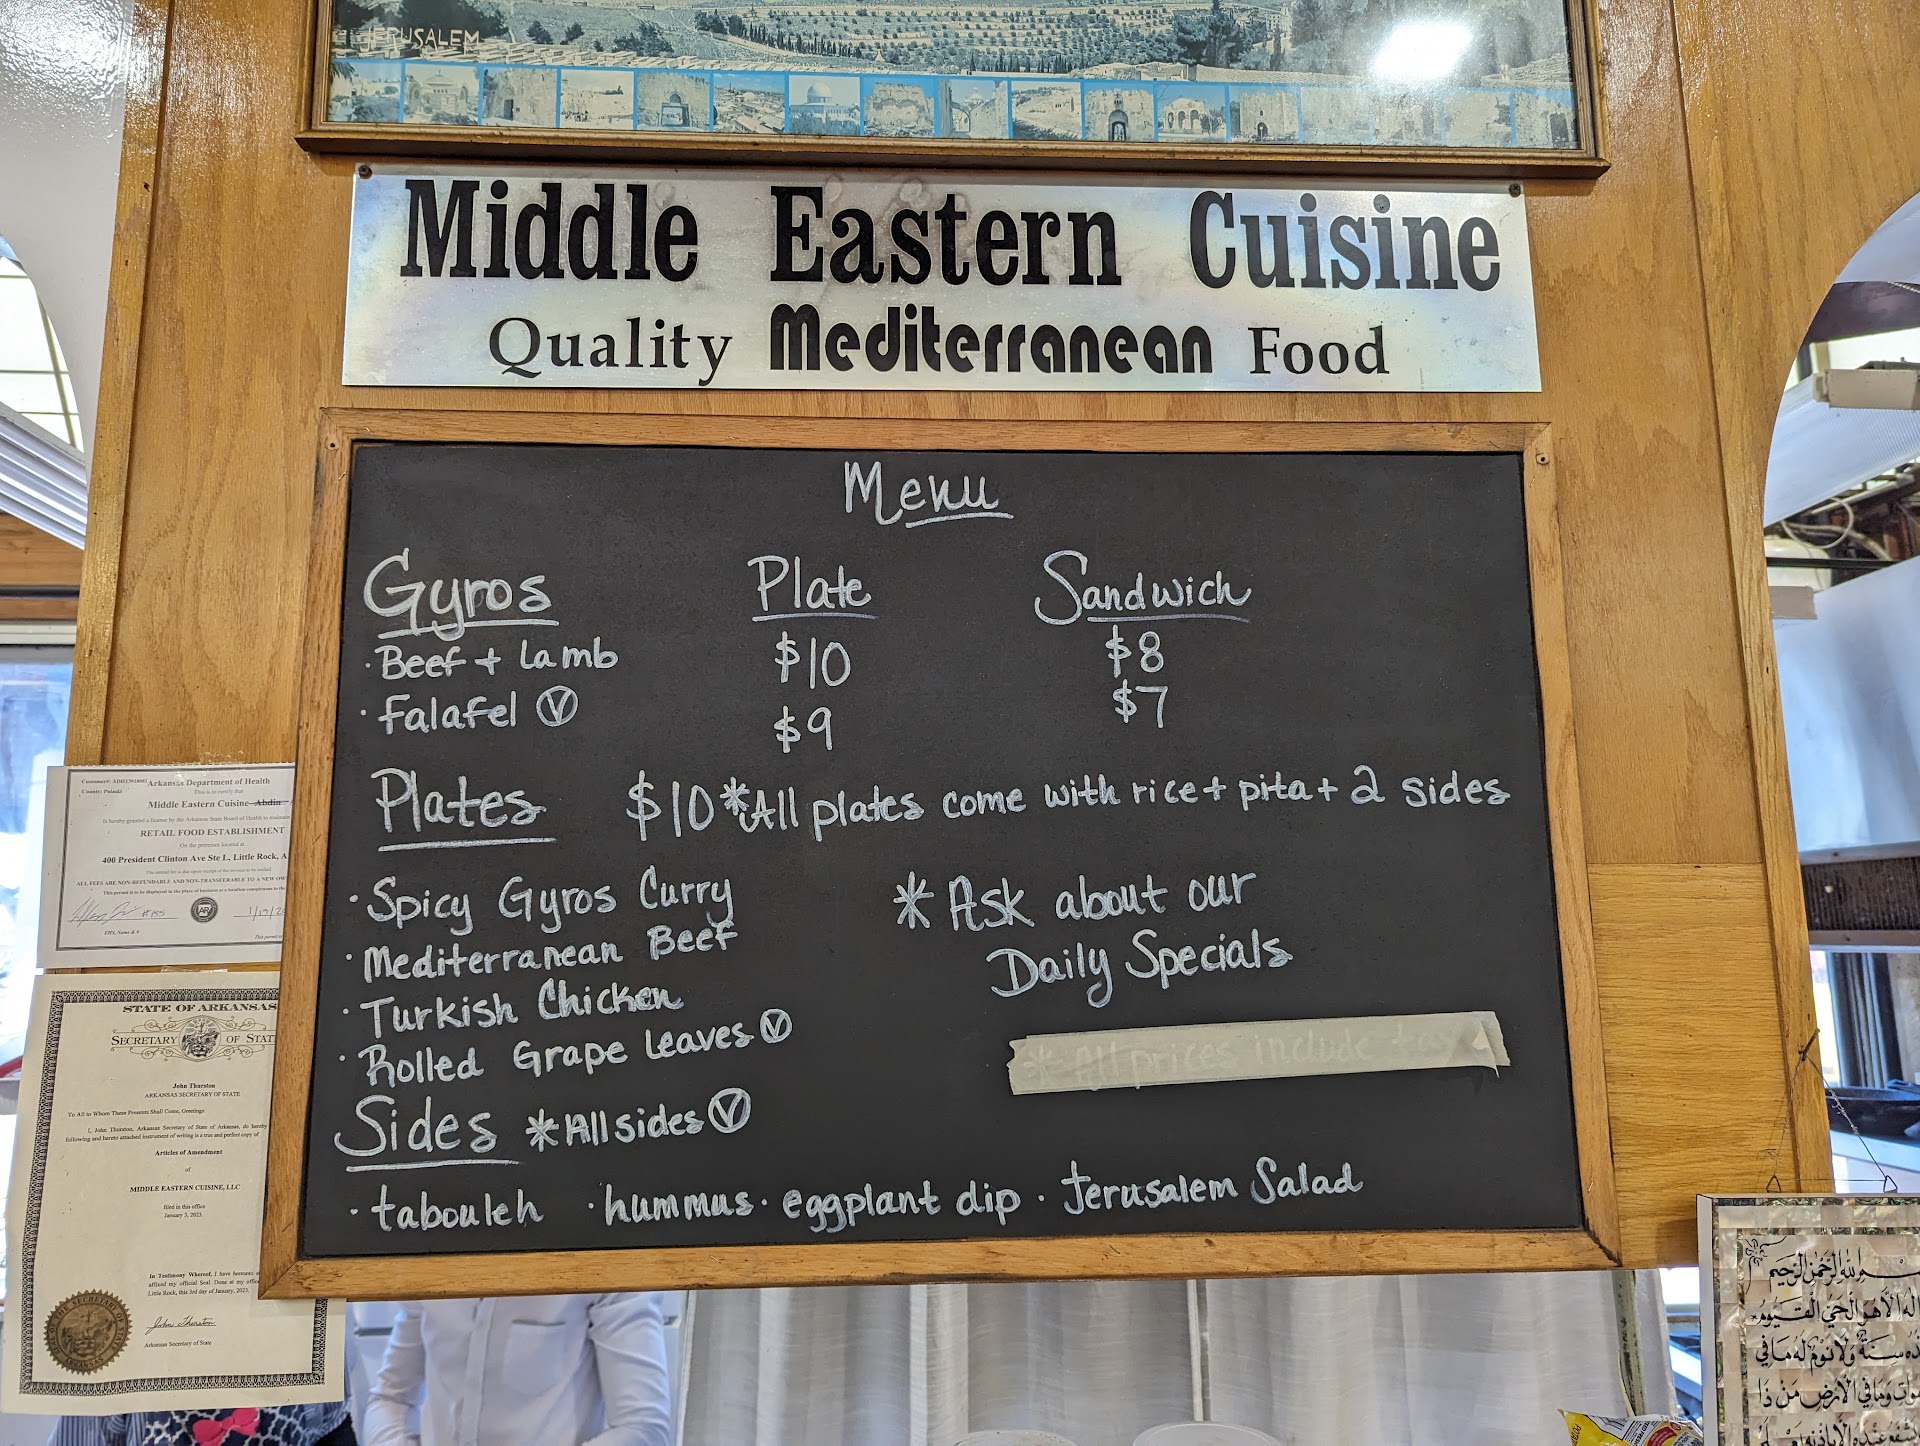 JERUSALEM
Middle Eastern Cuisine
Quality Mediterranean Food
Menu
Gyros Plate Sandwich
· Beef + Lamb $10 $8
· Falafel Ⓥ $9 $7
Plates $10 *All plates come with rice + pita + 2 sides
· Spicy Gyros Curry
· Mediterranean Beef
· Turkish Chicken
· Rolled Grape Leaves Ⓥ
* Ask about our
Daily Specials
* All prices include tax
Sides *All sides Ⓥ
· tabouleh · hummus · eggplant dip · Jerusalem Salad
Arkansas Department of Health
County: Pulaski
This is to certify that
Middle Eastern Cuisine Abdin
RETAIL FOOD ESTABLISHMENT
On the premises located at
400 President Clinton Ave Ste L, Little Rock, A
ALL FEES ARE NON-REFUNDABLE AND NON-TRANSFERABLE TO A NEW OW
#155
AR
EHS, Name & #
STATE OF ARKANSAS
SECRETARY OF STAT
John Thurston
ARKANSAS SECRETARY OF STATE
To All to Whom These Presents Shall Come, Greetings:
I, John Thurston, Arkansas Secretary of State of Arkansas, do hereby
following and hereto attached instrument of writing is a true and perfect copy of
Articles of Amendment
of
MIDDLE EASTERN CUISINE, LLC
filed in this office
January 3, 2023.
In Testimony Whereof, I have hereunto
affixed my official Seal. Done at my offic
Little Rock, this 3rd day of January, 2023.
John Thurston
Arkansas Secretary of State
بسم الله الرحمن الرحيم
إله إلا هو الحي القيوم
سنة ولا نوم له ما في
وما في الأرض من ذا